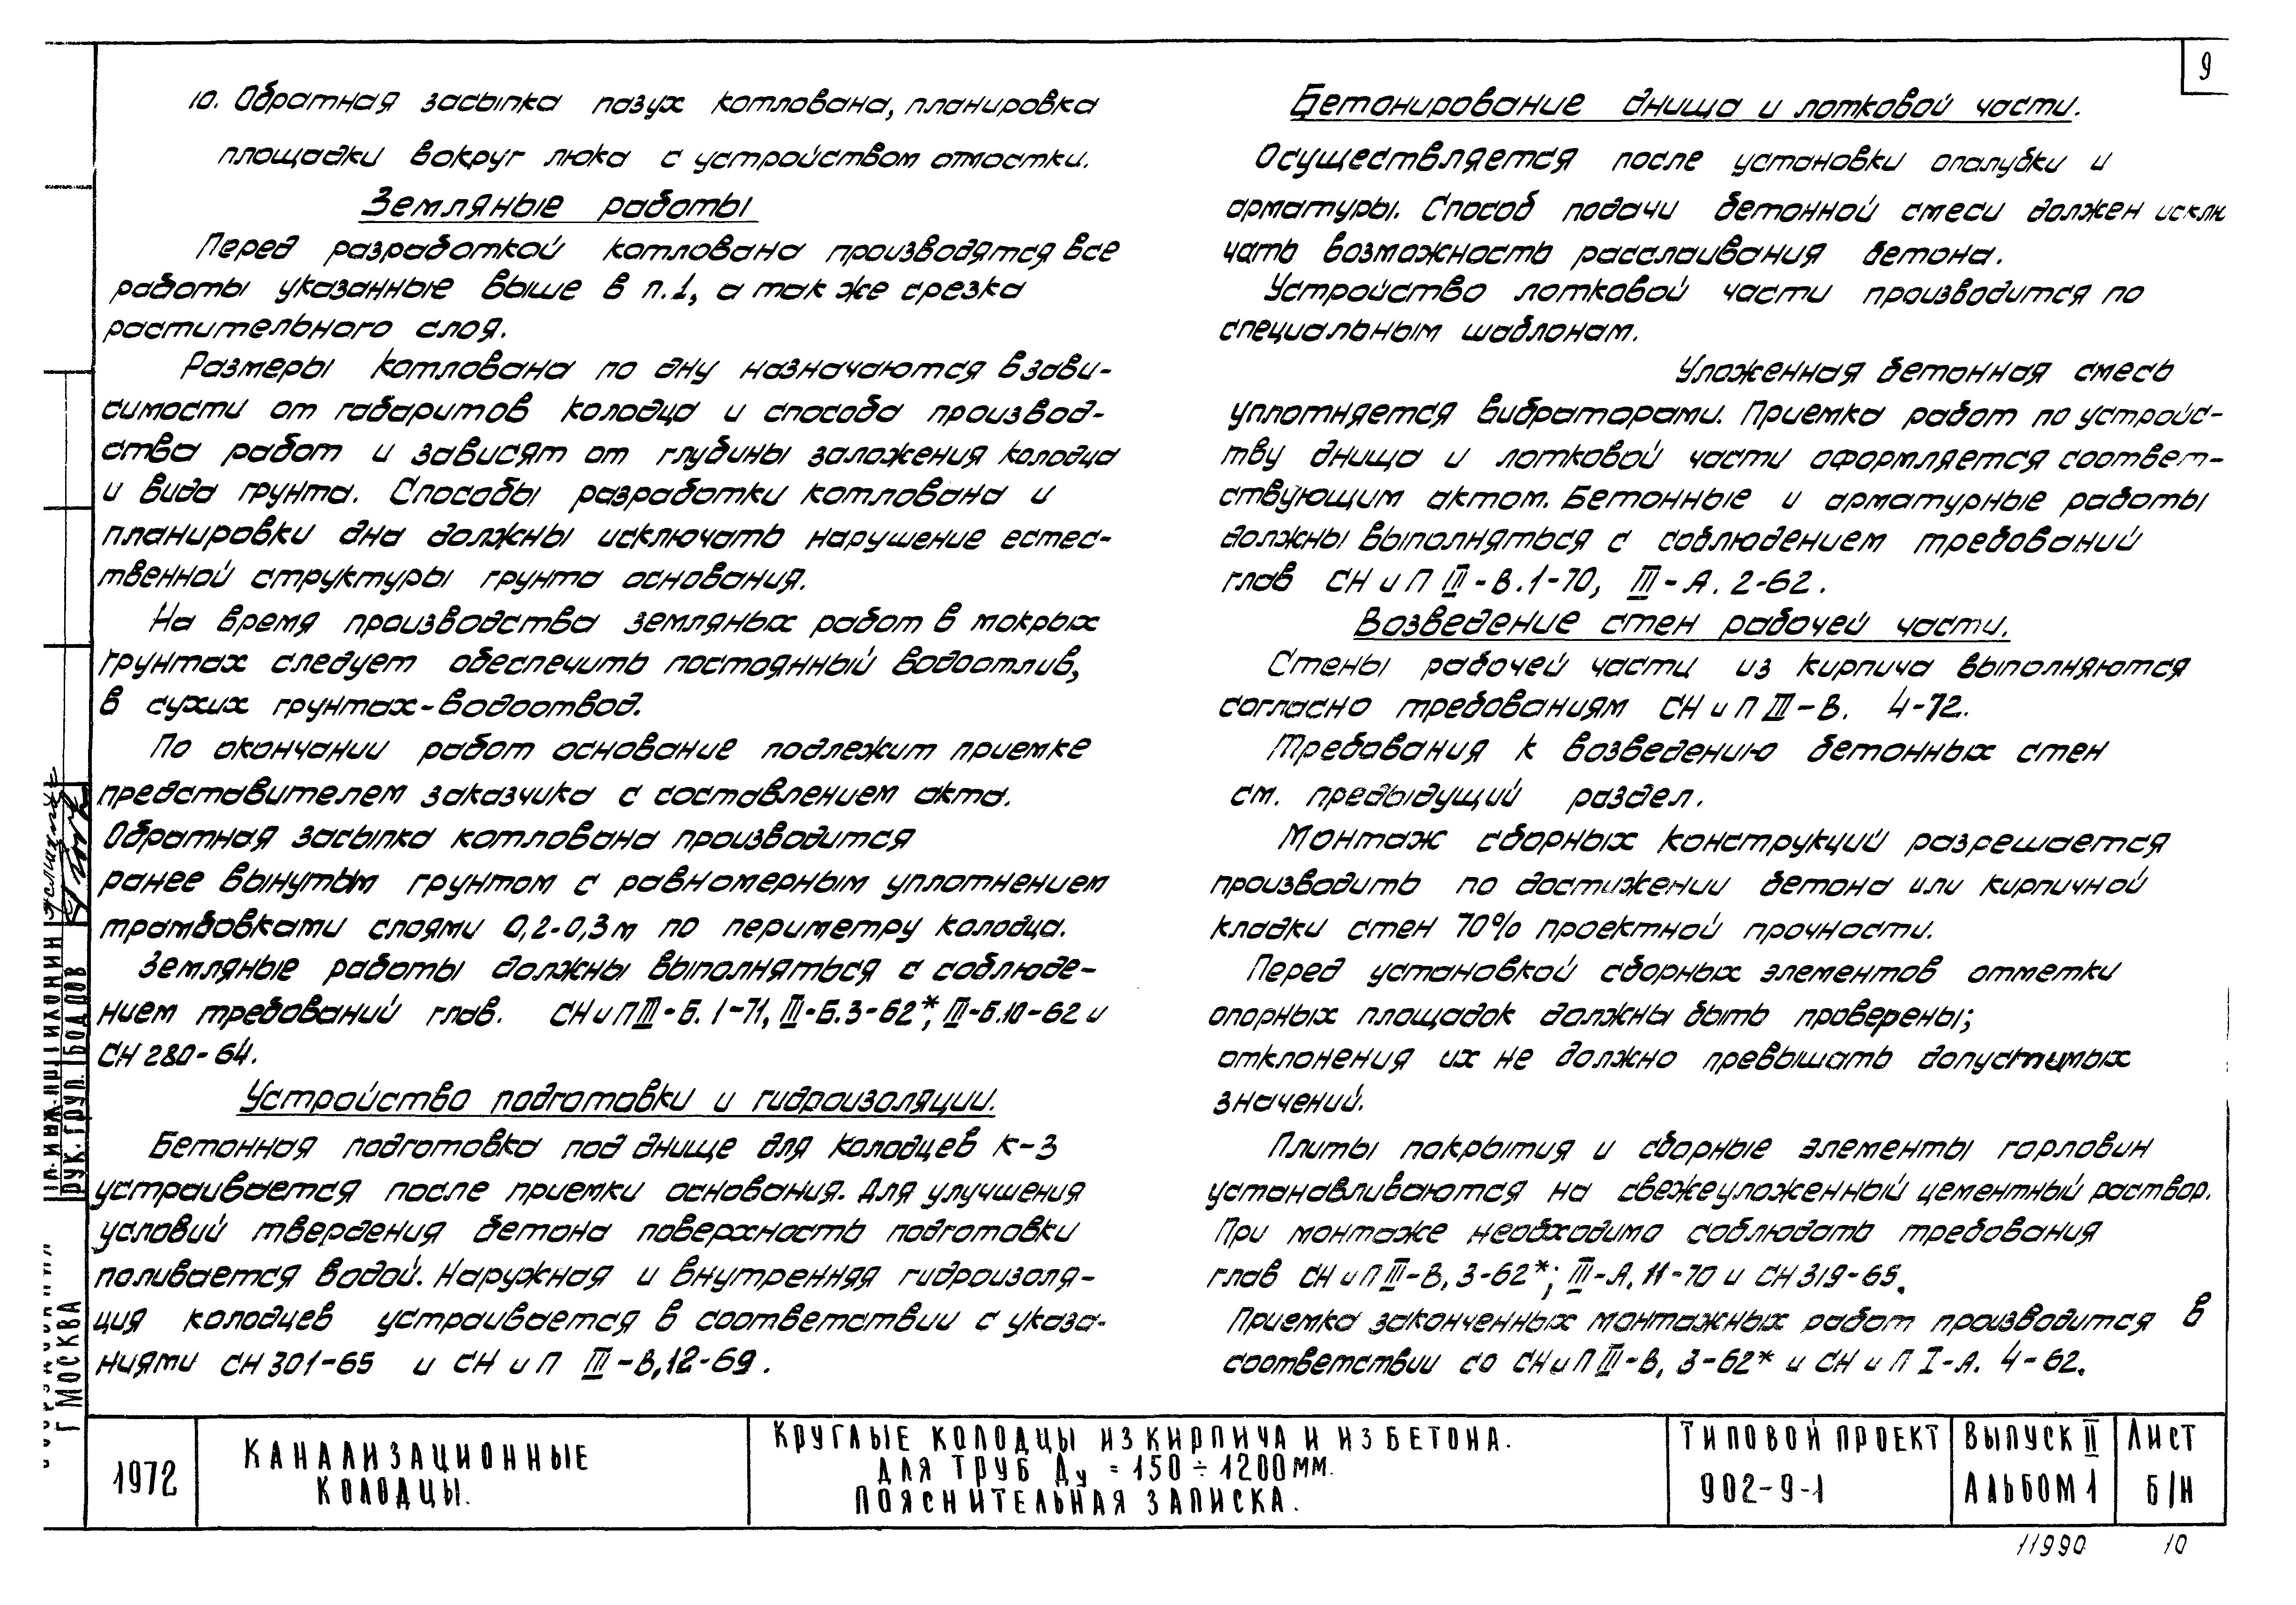 9
10. Обратная засыпка пазух котлована, планировка
площадки вокруг люка с устройством отмостки.
Земляные работы
Перед разработкой котлована производятся все
работы указанные выше в п.1, а так же срезка
растительного слоя.
Размеры котлована по дну назначаются в зави-
симости от габаритов колодца и способа производ-
ства работ и зависят от глубины заложения колодца
и вида грунта. Способы разработки котлована и
планировки дна должны исключать нарушение естес-
твенной структуры грунта основания.
На время производства земляных работ в мокрых
грунтах следует обеспечить постоянный водоотлив,
в сухих грунтах-водоотвод.
По окончании работ основание подлежит приемке
представителем заказчика с составлением акта.
Обратная засыпка котлована производится
ранее вынутым грунтом с равномерным уплотнением
трамбовками слоями 0,2-0,3м по периметру колодца.
Земляные работы должны выполняться с соблюде-
нием требований глав. СНиП III-Б. 1-71, III-Б.3-62*, III-Б.10-62 и
СН 280-64.
Устройство подготовки и гидроизоляции.
Бетонная подготовка под днище для колодцев К-3
устраивается после приемки основания. Для улучшения
условий твердения бетона поверхность подготовки
поливается водой. Наружная и внутренняя гидроизоля-
ция колодцев устраивается в соответствии с указа-
ниями СН 301-65 и СН и П III-В,12-69.
Бетонирование днища и лотковой части.
Осуществляется после установки опалубки и
арматуры. Способ подачи бетонной смеси должен исклю
чать возможность расслаивания бетона.
Устройство лотковой части производится по
специальным шаблонам.
Уложенная бетонная смесь
уплотняется вибраторами. Приемка работ по устройс-
тву днища и лотковой части оформляется соответ-
ствующим актом. Бетонные и арматурные работы
должны выполняться с соблюдением требований
глав СН и П III-В.1-70, III-А. 2-62.
Возведение стен рабочей части.
Стены рабочей части из кирпича выполняются
согласно требованиям СН и П III-В. 4-72.
Требования к возведению бетонных стен
см. предыдущий раздел.
Монтаж сборных конструкций разрешается
производить по достижении бетона или кирпичной
кладки стен 70% проектной прочности.
Перед установкой сборных элементов отметки
опорных площадок должны быть проверены;
отклонения их не должно превышать допустимых
значений.
Плиты покрытия и сборные элементы горловин
устанавливаются на свежеуложенный цементный раствор.
При монтаже необходимо соблюдать требования
глав СН и П III-В, 3-62*; III-А. 11-70 и СН 319-65.
Приемка законченных монтажных работ производится в
соответствии со СНиП III-В, 3-62* и СН и П I-А. 4-62.
ГЛ.ИНЖ.ПР. ТИХОНИН
РУК. ГРУП. БОДДОВ
Г МОСКВА
1972
КАНАЛИЗАЦИОННЫЕ
КОЛОДЦЫ.
КРУГЛЫЕ КОЛОДЦЫ ИЗ КИРПИЧА И ИЗ БЕТОНА.
ДЛЯ ТРУБ Ду = 150 ÷ 1200ММ.
ПОЯСНИТЕЛЬНАЯ ЗАПИСКА.
ТИПОВОЙ ПРОЕКТ
902-9-1
ВЫПУСК II
АЛЬБОМ 1
ЛИСТ
Б/Н
11990 10